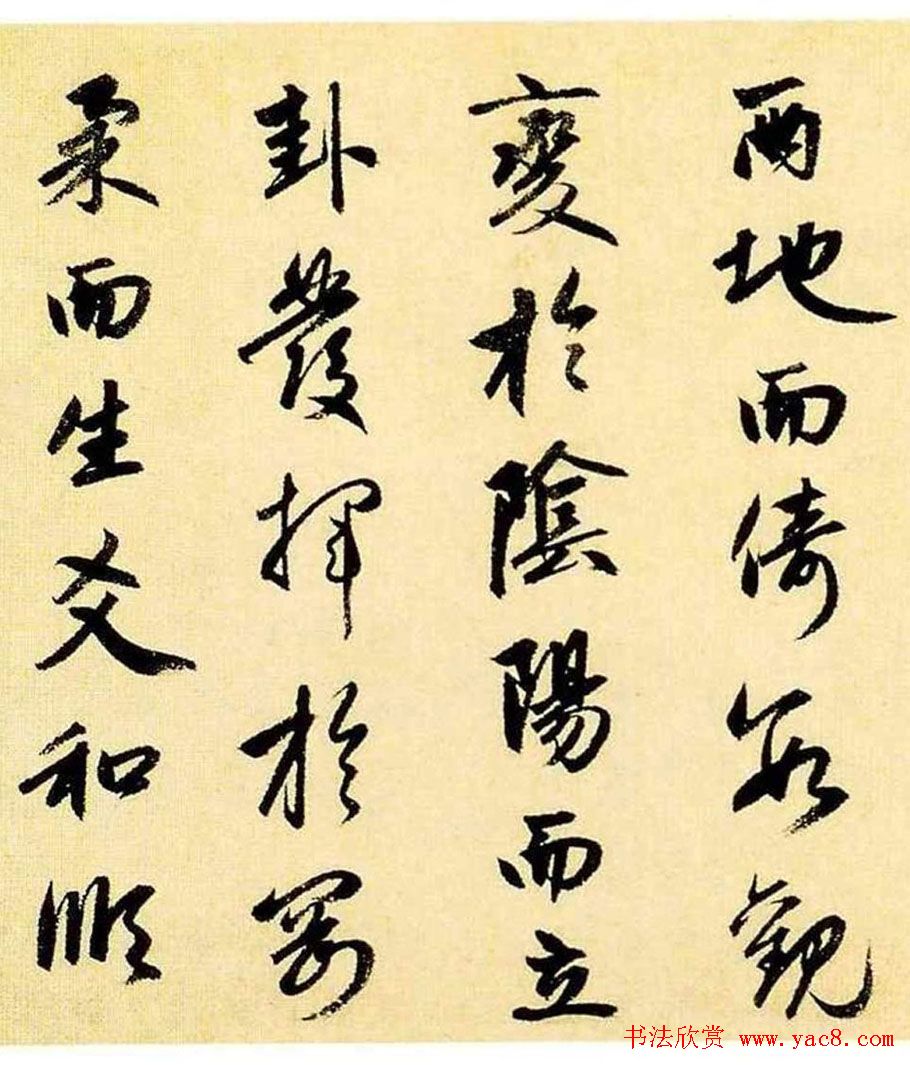 兩地而倚數觀
變於陰陽而立
卦發揮於剛
柔而生爻和順
书法欣赏 www.yac8.com